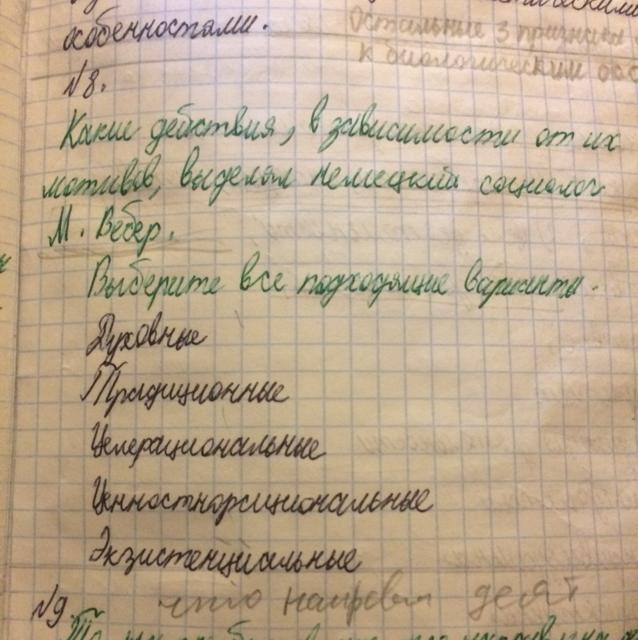 особенностами.
Остальные 3 признака
к биологическим
№8.
Какие действия, в зависимости от их
мотивов, выделял немецкий социолог
М. Вебер.
Выберите все подходящие варианты.
Духовные
Традиционные
Целерациональные
Ценностнорациональные
Экзистенциальные
№9
что